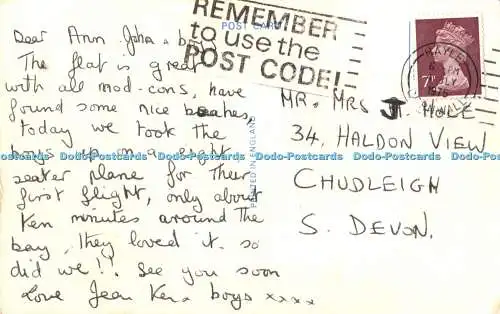 POST CARD
REMEMBER
to use the
POST CODE!
HAYLE
PM
JLY
1976
CORNWALL
7P
Dear Ann John & boys
The flat is great
with all mod-cons, have
found some nice beaches,
today we took the
boys up on a eight
seater plane for their
first flight, only about
ten minutes around the
bay, they loved it. so
did we!! See you soon
Love Jean Ken boys xxxx
PRINTED IN ENGLAND
MR. MRS J.
34, HALDON VIEW
CHUDLEIGH
S. DEVON.
Dodo-Postcards Dodo-Postcards Dodo-Postcards Dodo-Postcards Dodo-Postcards Dodo-Postcards